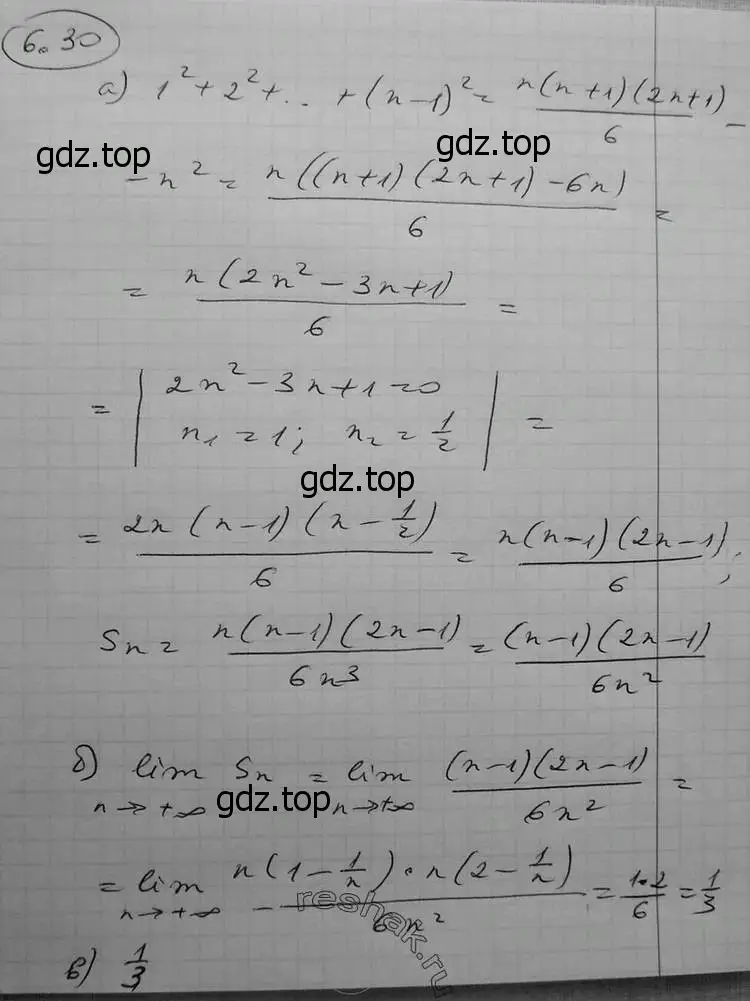 6.30
а) 1² + 2² + .. + (n-1)² = n(n+1)(2n+1)/6 -
gdz.top gdz.top
- n² = n((n+1)(2n+1) - 6n)/6 =
= n(2n² - 3n+1)/6 =
= | 2n² - 3n+1=0
n₁ = 1; n₂ = 1/2 | =
gdz.top
= 2n(n-1)(n - 1/2)/6 = n(n-1)(2n-1)/6;
Sn = n(n-1)(2n-1)/6n³ = (n-1)(2n-1)/6n²
б) lim n→+∞ Sn = lim n→+∞ (n-1)(2n-1)/6n² =
gdz.top
= lim n→+∞ n(1 - 1/n)·n(2 - 1/n)/6n² = 1·2/6 = 1/3
reshak.ru
в) 1/3